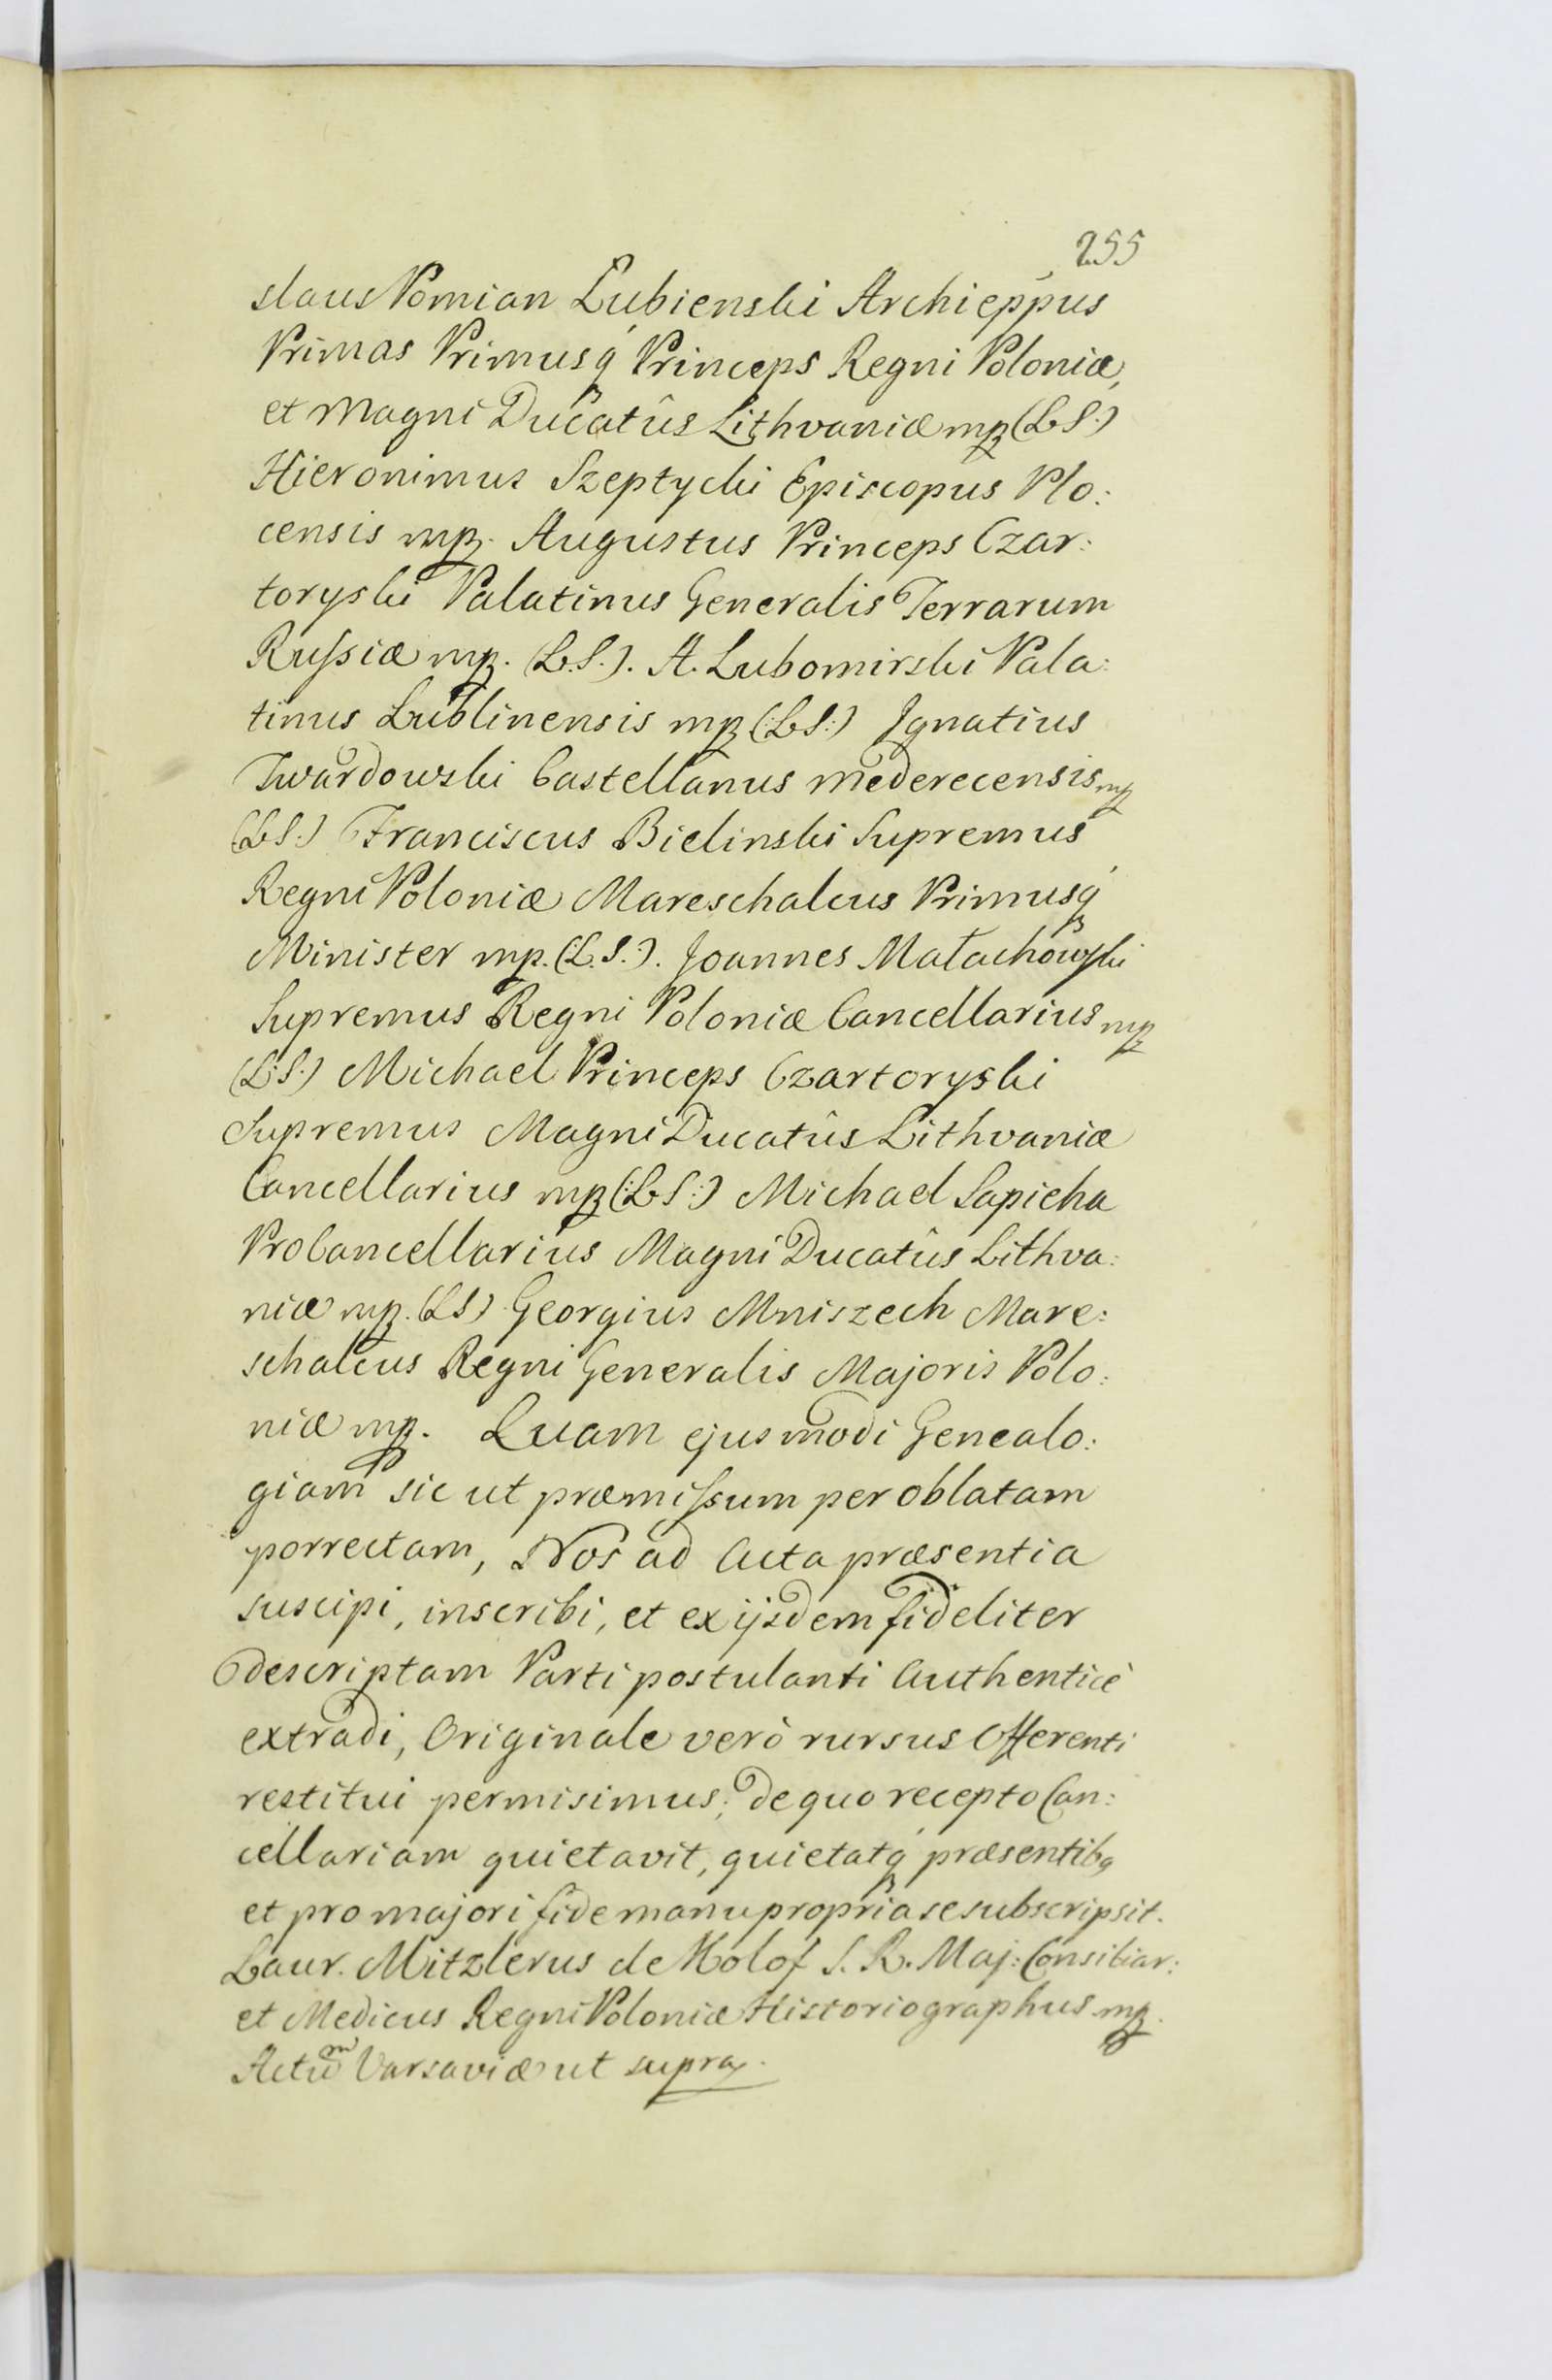 255
slaus Pomian Łubienski Archieppus
Primas Primusq́ Princeps Regni Poloniæ,
et Magni Ducatûs Lithvaniæ mp (L.S.)
Hieronimus Szeptycki Episcopus Plo:
censis mp. Augustus Princeps Czar:
toryski Palatinus Generalis Terrarum
Rußiæ mp. (L.S.). A. Lubomirski Pala:
tinus Lublinensis mp (:L.S:) Ignatius
Twardowski Castellanus Mederecensis mp
(L.S.) Franciscus Bielinski Supremus
Regni Poloniæ Mareschalcus Primusq́
Minister mp. (:L.S.:). Joannes Małachowski
Supremus Regni Poloniæ Cancellarius mp
(L.S.) Michael Princeps Czartoryski
Supremus Magni Ducatûs Lithvaniæ
Cancellarius mp (:L.S:) Michael Sapieha
ProCancellarius Magni Ducatûs Lithva:
niæ mp. (LS) Georgius Mniszech Mare:
schalcus Regni Generalis Majoris Polo:
niæ mp. Quam ejusmodi Genealo:
giam sic ut præmißum per oblatam
porrectam, Nos ad Acta præsentia
suscipi, inscribi, et ex ijsdem fideliter
descriptam Parti postulanti Authenticè
extradi, Originale verò rursus Offerenti
restitui permisimus; de quo recepto Can:
cellariam quietavit, quietatq́ præsentibꝰ
et pro majori fide manu propria se subscripsit.
Laur. Mitzlerus de Kolof S. R. Maj: Consiliar:
et Medicus Regni Poloniæ Historiographus mp.
Actum Varsaviæ ut supra.